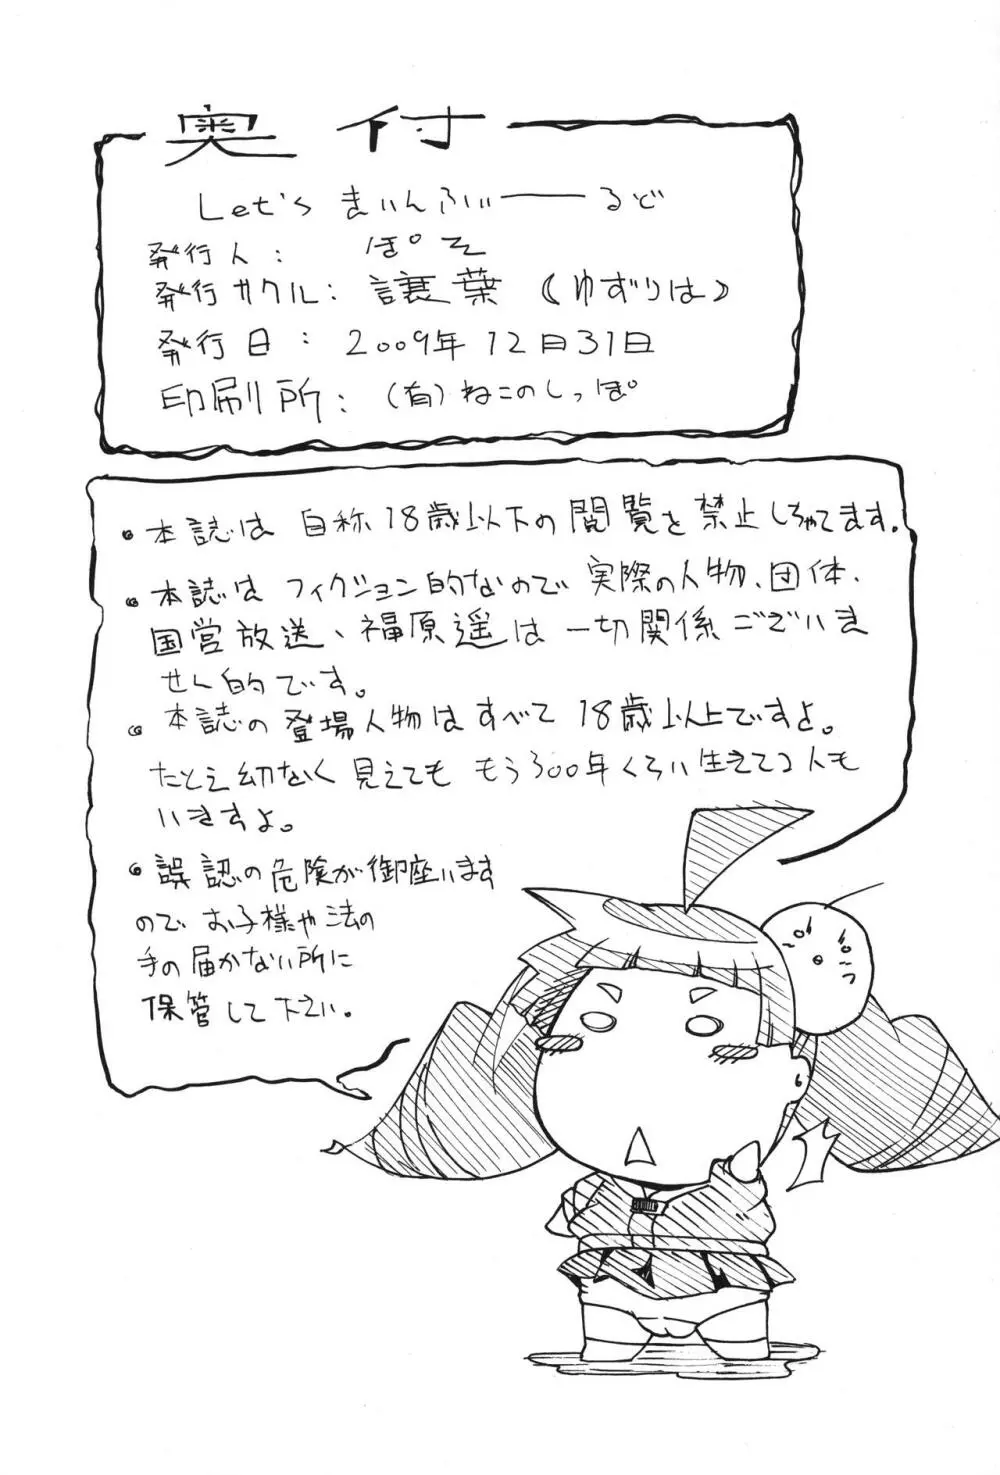 奥付
Let's きいんふぃーーるど
発行人: ぽ そ
発行サクル: 譲葉 (ゆずりは)
発行日: 2009年12月31日
印刷所: (有)ねこのしっぽ
・本誌は 自称18歳以下の閲覧を禁止しちゃてます。
・本誌は フィクション的なので 実際の人物、団体、
国営放送、福原遥は一切関係ございま
せん的です。
・本誌の登場人物はすべて18歳以上ですよ。
たとえ幼なく見えても もう300年くらい生きてる人も
いますよ。
・誤認の危険が御座います
ので お子様や法の
手の届かない所に
保管して下さい。